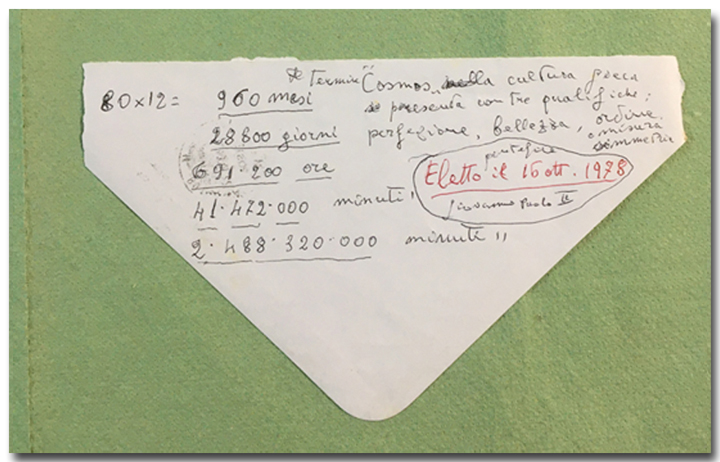 Il termine "Cosmos" nella cultura greca
80 x 12 = 960 mesi
si presenta con tre qualifiche:
28800 giorni
perfezione, bellezza, ordine,
o misura
simmetria
691.200 ore
pontefice
Eletto il 16 ott. 1978
Giovanni Paolo II
41.472.000 minuti'
2.488.320.000 minuti "